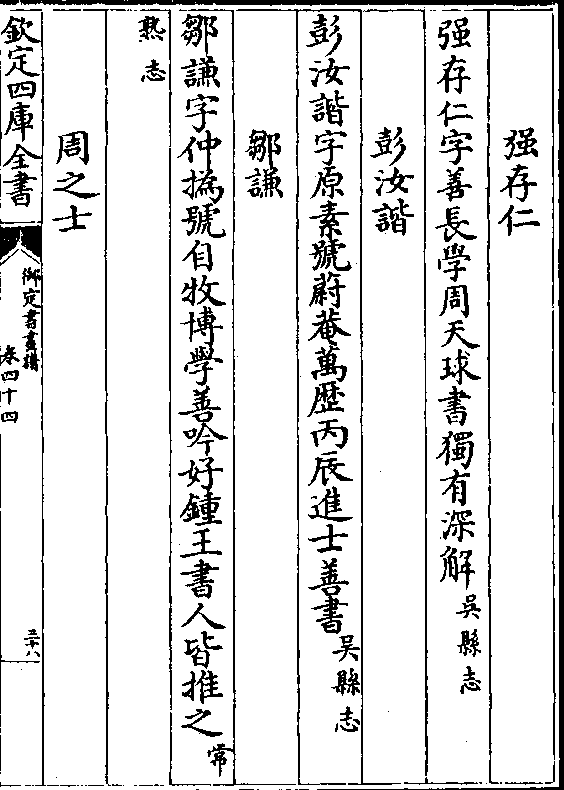 强存仁
强存仁字善長學周天球書獨有深解吳縣志
彭汝諧
彭汝諧字原素號蔚菴萬歴丙辰進士善書吳縣志
鄒謙
鄒謙字仲撝號自牧博學善吟好鍾王書人皆推之常
熟志
周之士
欽定四庫全書
御定書畫譜
卷四十四
三十八